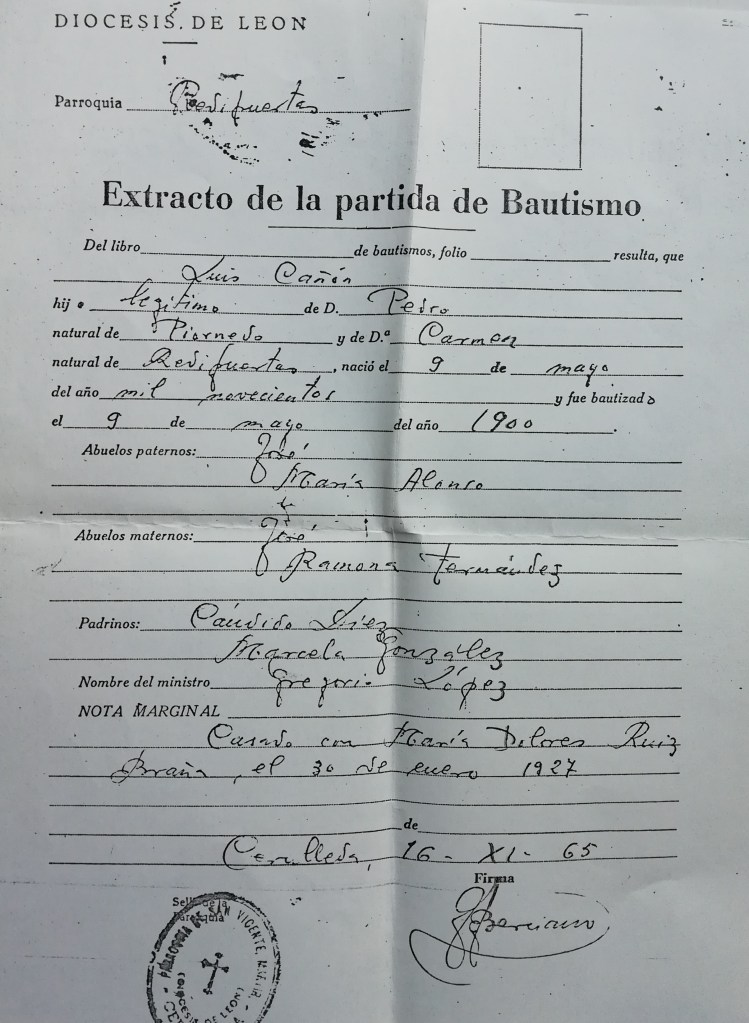 DIOCESIS DE LEON
Parroquia Redifuertas
Extracto de la partida de Bautismo
Del libro de bautismos, folio resulta, que
Luis Cañón
hijo legítimo de D. Pedro
natural de Piornedo y de D.ª Carmen
natural de Redifuertas, nació el 9 de mayo
del año mil novecientos y fue bautizado
el 9 de mayo del año 1900.
Abuelos paternos: José
María Alonso
Abuelos maternos: José
Ramona Fernández
Padrinos: Cándido Díez
Marcela González
Nombre del ministro Gregorio López
NOTA MARGINAL
Casado con María Dolores Ruiz
Braña, el 30 de enero 1927
de
Cerulleda, 16 - XI - 65
Firma
Sello de la
Parroquia
PARROQUIA DE SAN VICENTE, MARTIR
(DIOCESIS DE LEON)